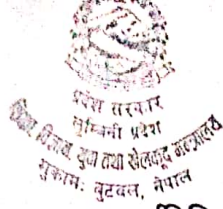 प्रदेश सरकार
लुम्बिनी प्रदेश
शिक्षा, विज्ञान, युवा तथा खेलकुद मन्त्रालय
मुकाम: बुटवल, नेपाल